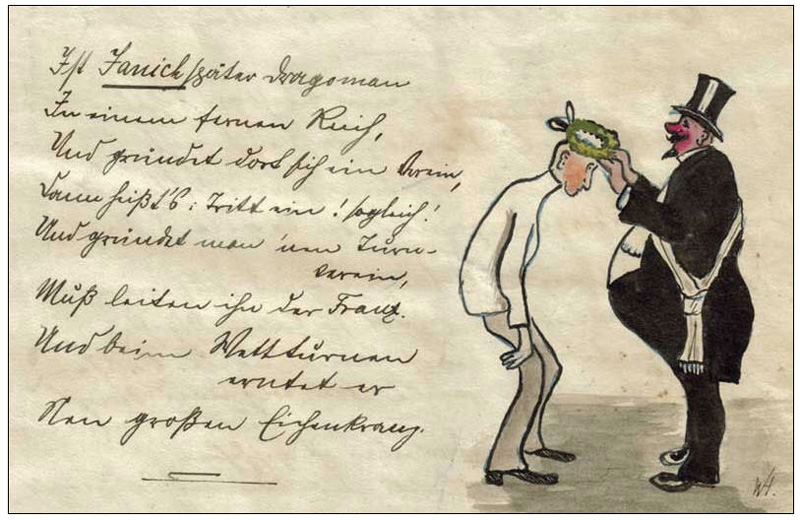 Ist Janich später Dragoman
In einem fernen Reich,
Und gründet dort sich ein Verein,
Dann heißt's: Tritt ein! sogleich!
Und gründet man 'nen Turn-
verein,
Muß leiten ihn der Franz.
Und beim Wettturnen
erntet er
Nen großen Eichenkranz.
WH.